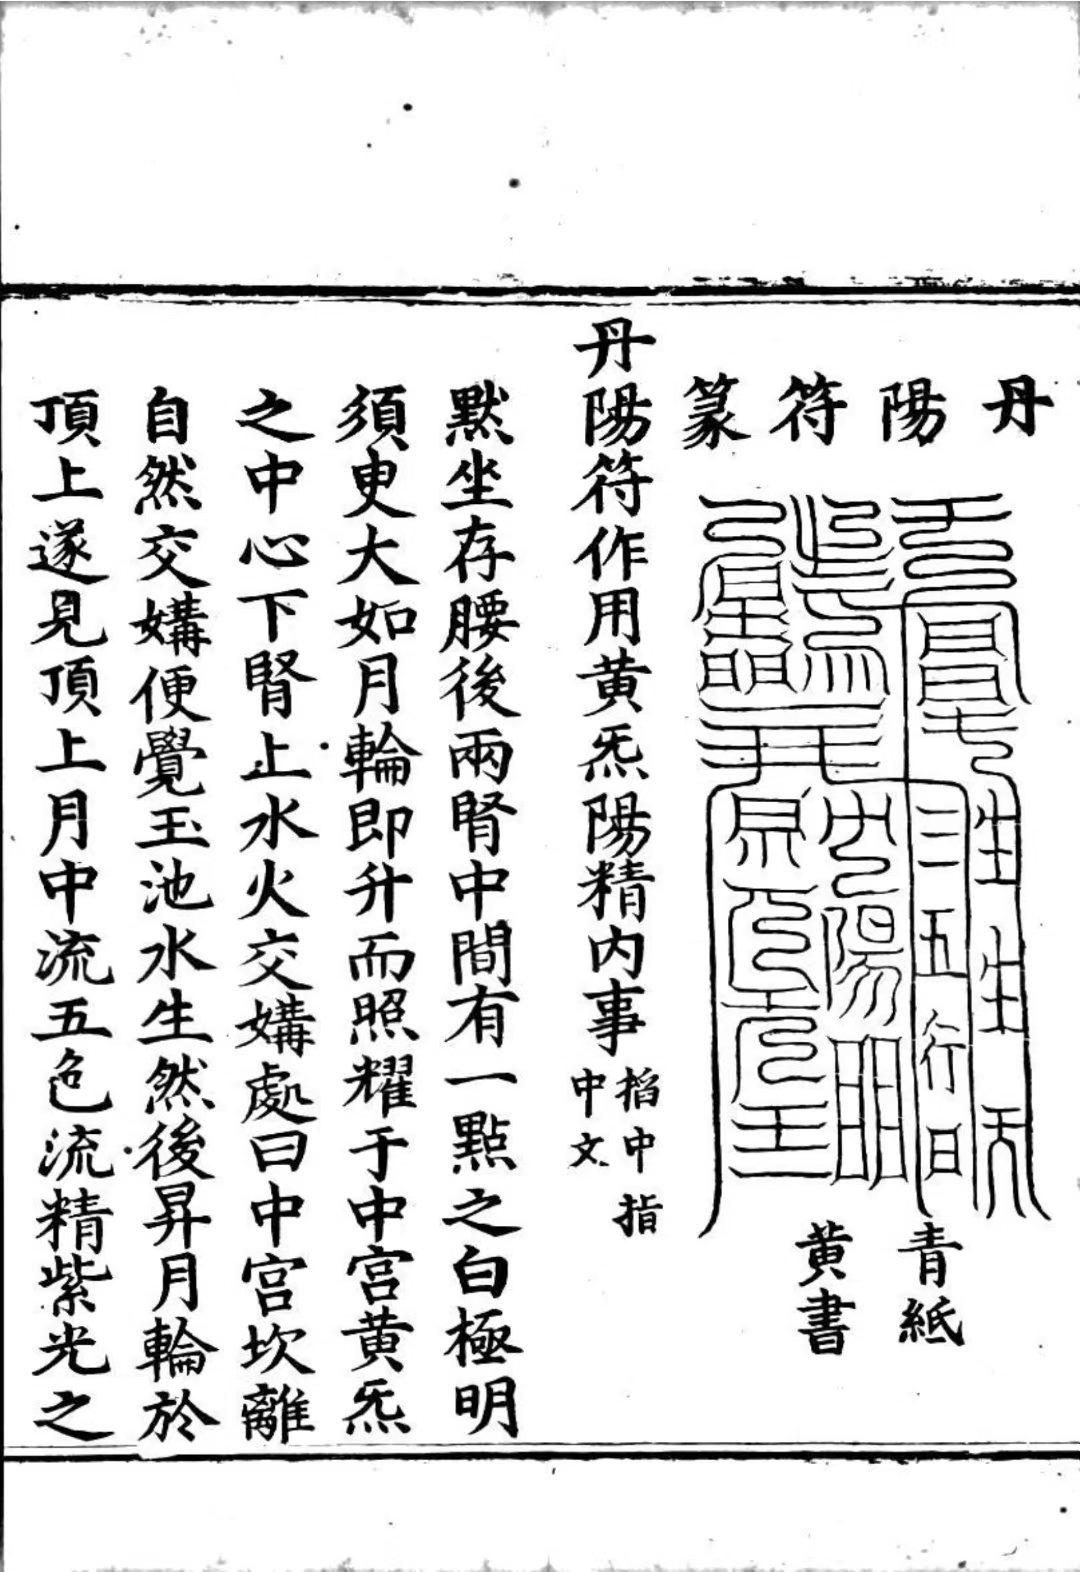 丹陽符篆
青紙
黄書
丹陽符作用黄炁陽精内事
搯中指
中文
默坐存腰後兩腎中間有一點之白極明
須㬰大如月輪即升而照耀于中宫黄炁
之中心下腎上水火交媾處曰中宫坎離
自然交媾便覺玉池水生然後昇月輪於
頂上遂見頂上月中流五色流精紫光之